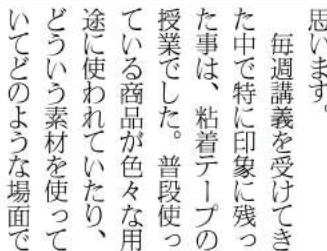 思います。
　毎週講義を受けてき
た中で特に印象に残っ
た事は、粘着テープの
授業でした。普段使っ
ている商品が色々な用
途に使われていたり、
どういう素材を使って
いてどのような場面で